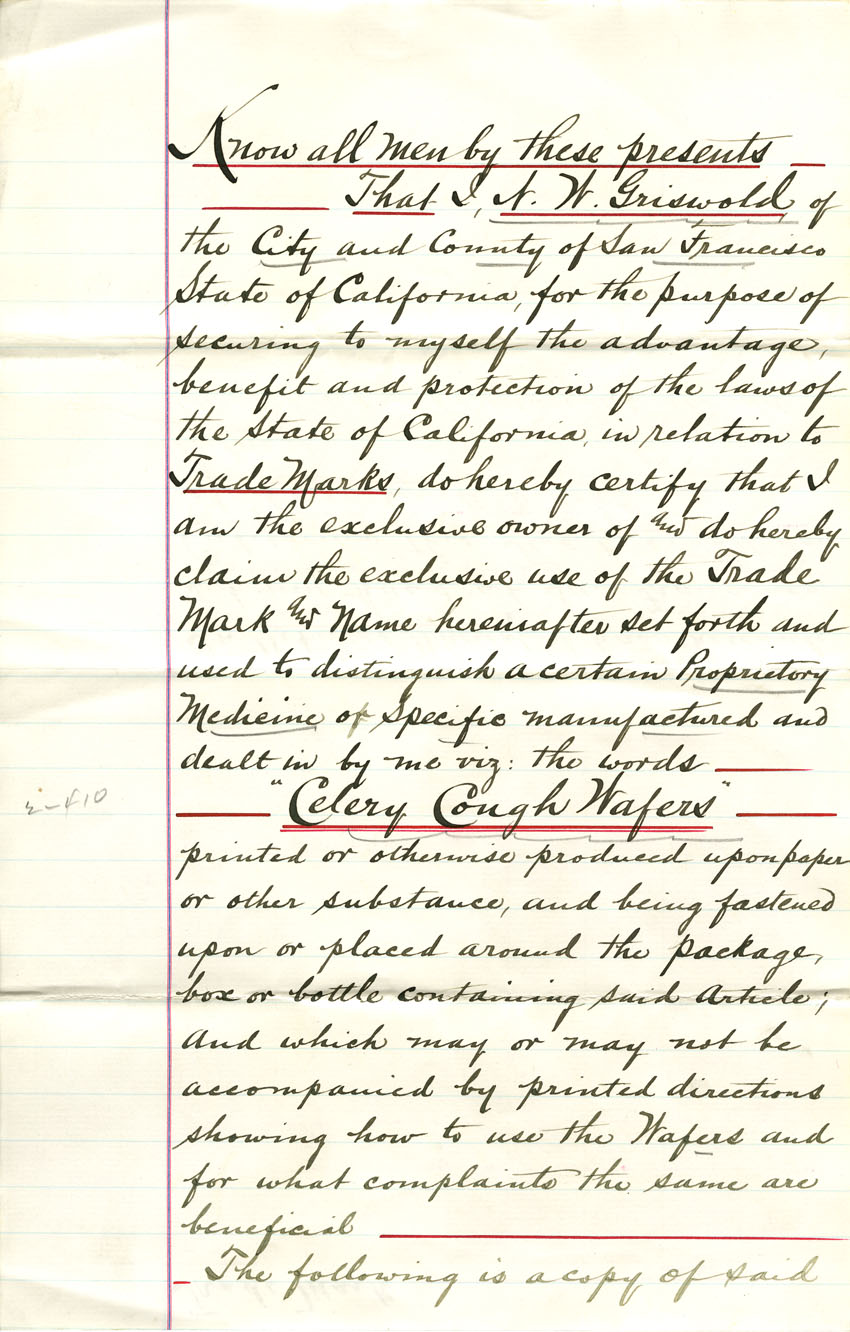 Know all men by these presents
That I, N. W. Griswold, of
the City and County of San Francisco
State of California, for the purpose of
securing to myself the advantage,
benefit and protection of the laws of
the State of California, in relation to
Trade Marks, do hereby certify that I
am the exclusive owner of and do hereby
claim the exclusive use of the Trade
Mark and Name hereinafter set forth and
used to distinguish a certain Proprietory
Medicine or Specific manufactured and
dealt in by me viz: the words
"Celery Cough Wafers"
printed or otherwise produced upon paper
or other substance, and being fastened
upon or placed around the package,
box or bottle containing said Article;
and which may or may not be
accompanied by printed directions
showing how to use the Wafers and
for what complaints the same are
beneficial
The following is a copy of said